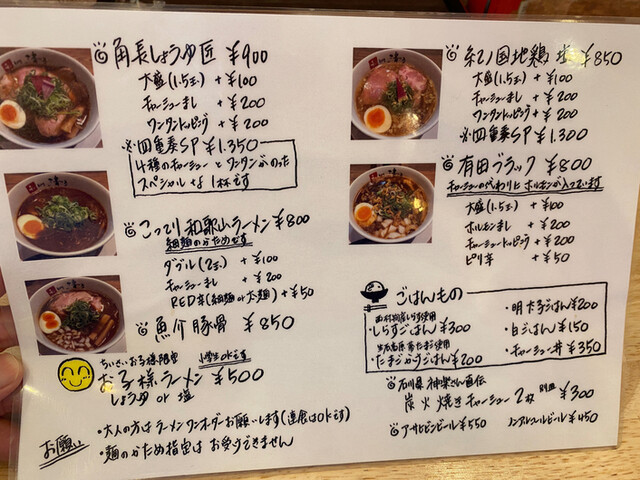 角長しょうゆ匠 ¥900
大盛(1.5玉) +¥100
チャーシューまし +¥200
ワンタントッピング +¥200
※四重奏SP ¥1,350
4種のチャーシューとワンタンがのった
スペシャルな1杯です
こってり和歌山ラーメン ¥800
細麺のかためです
ダブル(2玉) +¥100
チャーシューまし +¥200
RED辛(細麺or太麺) +¥50
魚介豚骨 ¥850
ちいさいお子様限定 小学生OKです
お子様ラーメン ¥500
しょうゆ or 塩
お願い
・大人の方はラーメンワンオーダーお願いします(追食はOKです)
・麺のかため指定はお受けできません
紀ノ国地鶏 塩 ¥850
大盛(1.5玉) +¥100
チャーシューまし +¥200
ワンタントッピング +¥200
※四重奏SP ¥1,300
有田ブラック ¥800
チャーシューの代わりにホルモンが入っています
大盛(1.5玉) +¥100
ホルモンまし +¥200
チャーシュートッピング +¥200
ピリ辛 +¥50
ごはんもの
しらすごはん ¥300
たまごかけごはん ¥200
・明太子ごはん ¥200
・白ごはん ¥150
・チャーシュー丼 ¥350
石川県 神楽さん直伝
炭火焼きチャーシュー 2枚 ¥300
アサヒビンビール ¥550 ノンアルコールビール ¥450